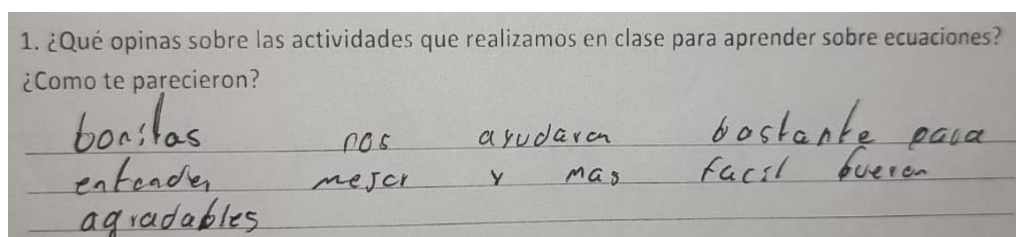 1. ¿Qué opinas sobre las actividades que realizamos en clase para aprender sobre ecuaciones?
¿Como te parecieron?
bonitas nos ayudaron bastante para
entender mejor y mas facil fueron
agradables